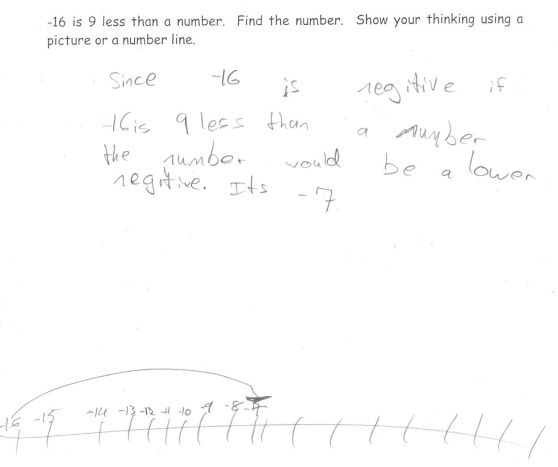 -16 is 9 less than a number. Find the number. Show your thinking using a
picture or a number line.
Since -16 is negitive if
-16 is 9 less than a number
the number would be a lower
negitive. Its -7
-16 -15 -14 -13 -12 -11 -10 -9 -8 -7